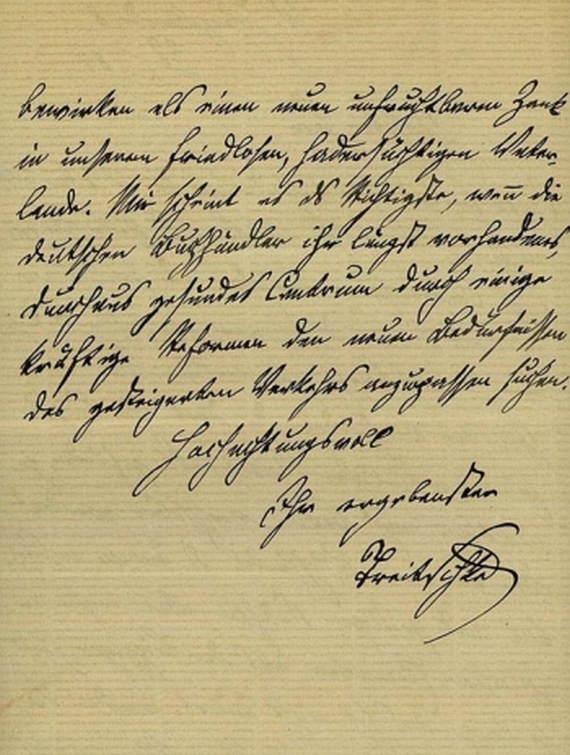 bewirken als einen neuen unfruchtbaren Zank
in unserem friedlosen, hadersüchtigen Vater-
lande. Mir scheint es ds Richtigste, weñ die
deutschen Buchhändler ihr längst vorhandenes,
durchaus gesundes Centrum durch einige
kräftige Reformen den neuen Bedürfnissen
des gesteigerten Verkehrs anzupassen suchen.
Hochachtungsvoll
Ihr ergebenster
Treitschke